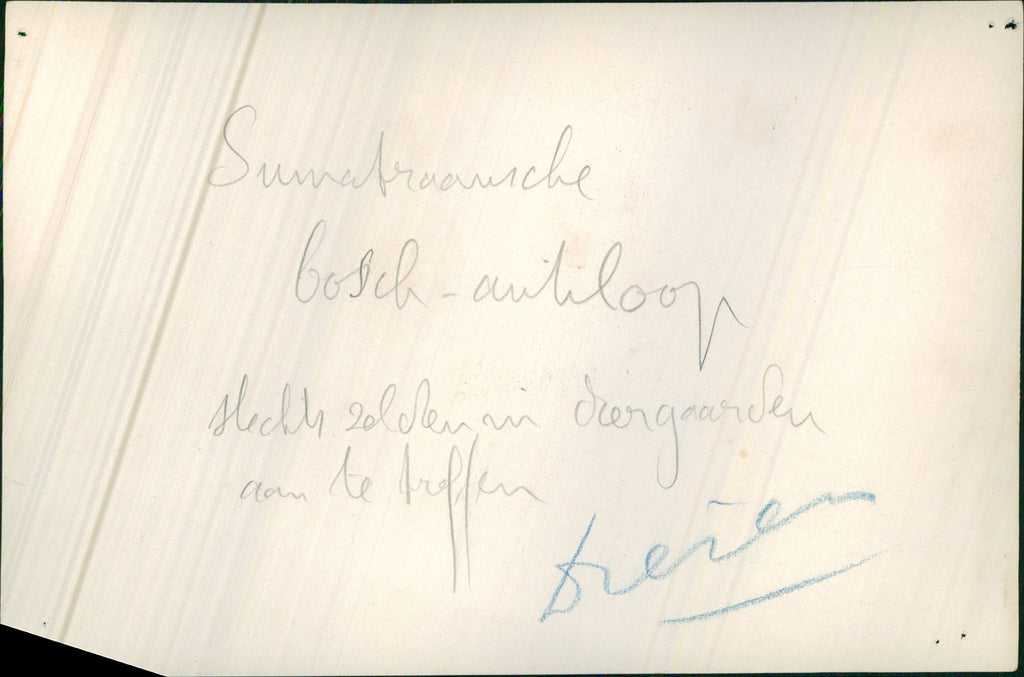 Sumatraansche
bosch-antiloop
slechts zelden in diergaarden
aan te treffen
dieren